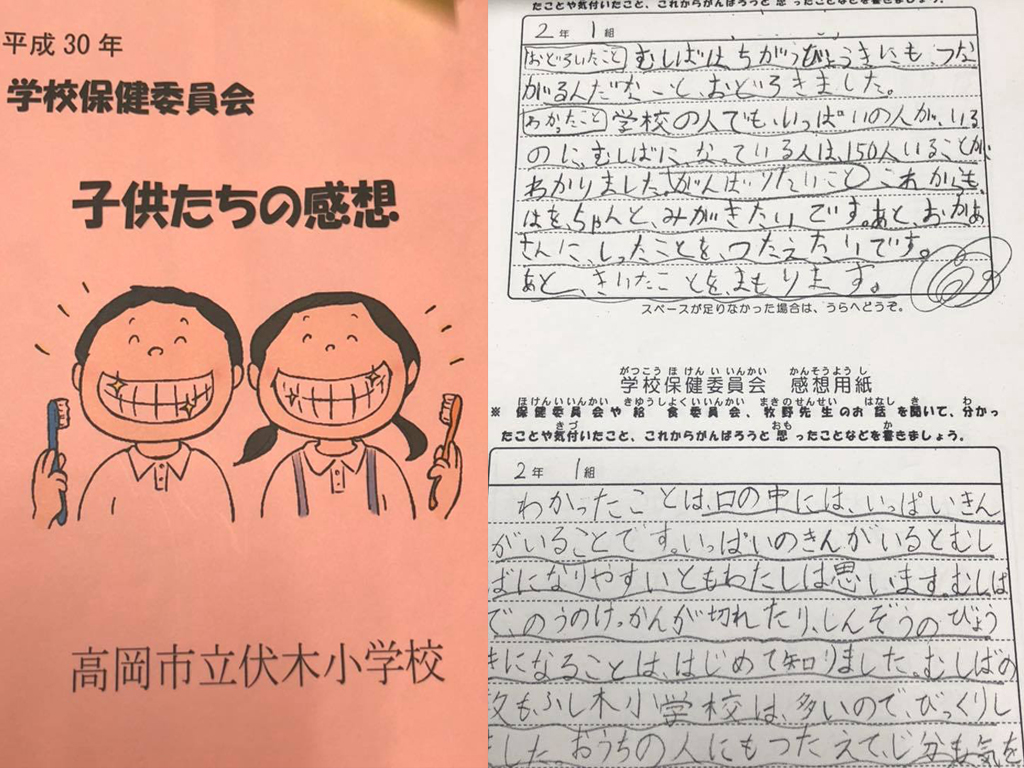 平成30年
学校保健委員会
子供たちの感想
高岡市立伏木小学校
たことや気付いたこと、これからがんばろうと思ったことなどを書きましょう。
2年 1組
おどろいたこと むしばは、ちがうびょうきにも、つな
がるんだなこと、おどろきました。
わかったこと 学校の人でも、いっぱいの人が、いる
のに、むしばに、なっている人は、150人いることが、
わかりました。がんばりたいこと これからも、
はを、ちゃんと、みがきたいです。あと、おかあ
さんに、しったことを、つたえたいです。
あと、きいたことを、まもります。
スペースが足りなかった場合は、うらへどうぞ。
がつこう ほ けん い いんかい かんそうよう し
学校保健委員会 感想用紙
ほけん いいんかい きゆうしよくいいんかい まきのせんせい はなし き わ
※ 保健委員会や給食委員会、牧野先生のお話を聞いて、分かっ
きづ おも か
たことや気付いたこと、これからがんばろうと思ったことなどを書きましょう。
2年 1組
わかったことは、口の中には、いっぱいきん
がいることです。いっぱいのきんがいるとむし
ばになりやすいともわたしは思います。むしば
で、のうのけっかんが切れたり、しんぞうのびょう
きになることは、はじめて知りました。むしばの
数も、ふし木小学校は、多いので、びっくりし
ました。おうちの人にもつたえて、じ分も気を